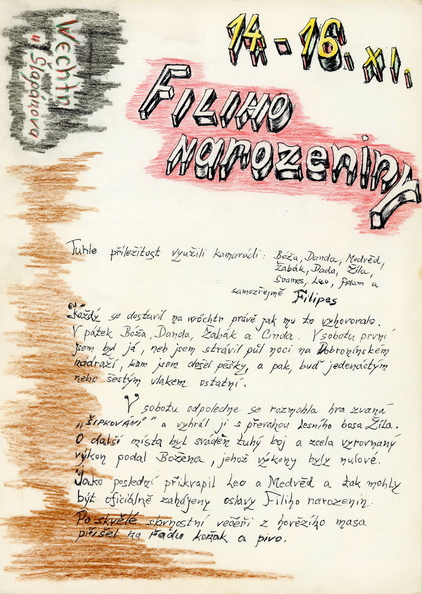 Wechtr
u Štěpánova
14.-16. XI.
FILIHO
NAROZENINY
Tuhle příležitost využili kamarádi: Bóža, Danda, Medvěd,
Žabák, Dada, Žíla,
Soames, Leo, Adam a
samozřejmě Filipes
Každý se dostavil na wóchtr právě jak mu to vyhovovalo.
V pátek Bóža, Danda, Žabák a Cinda. V sobotu první
jsem byl já, neb jsem strávil půl noci na Dobronínském
nádraží, kam jsem došel pěšky, a pak, buď jedenáctým
nebo šestým vlakem ostatní.
V sobotu odpoledne se rozmohla hra zvaná
"ŠIPKOVÁNÍ" a vyhrál ji s převahou Lesního bosa Žíla.
O další místa byl sváděn tuhý boj a zcela vyrovnaný
výkon podal Božena, jehož výkony byly nulové.
Jako poslední přikvapil Leo a Medvěd a tak mohly
být oficiálně zahájeny oslavy Filiho narozenin.
Po skvělé večeři z hovězího masa
přišel na řadu koňak a pivo.